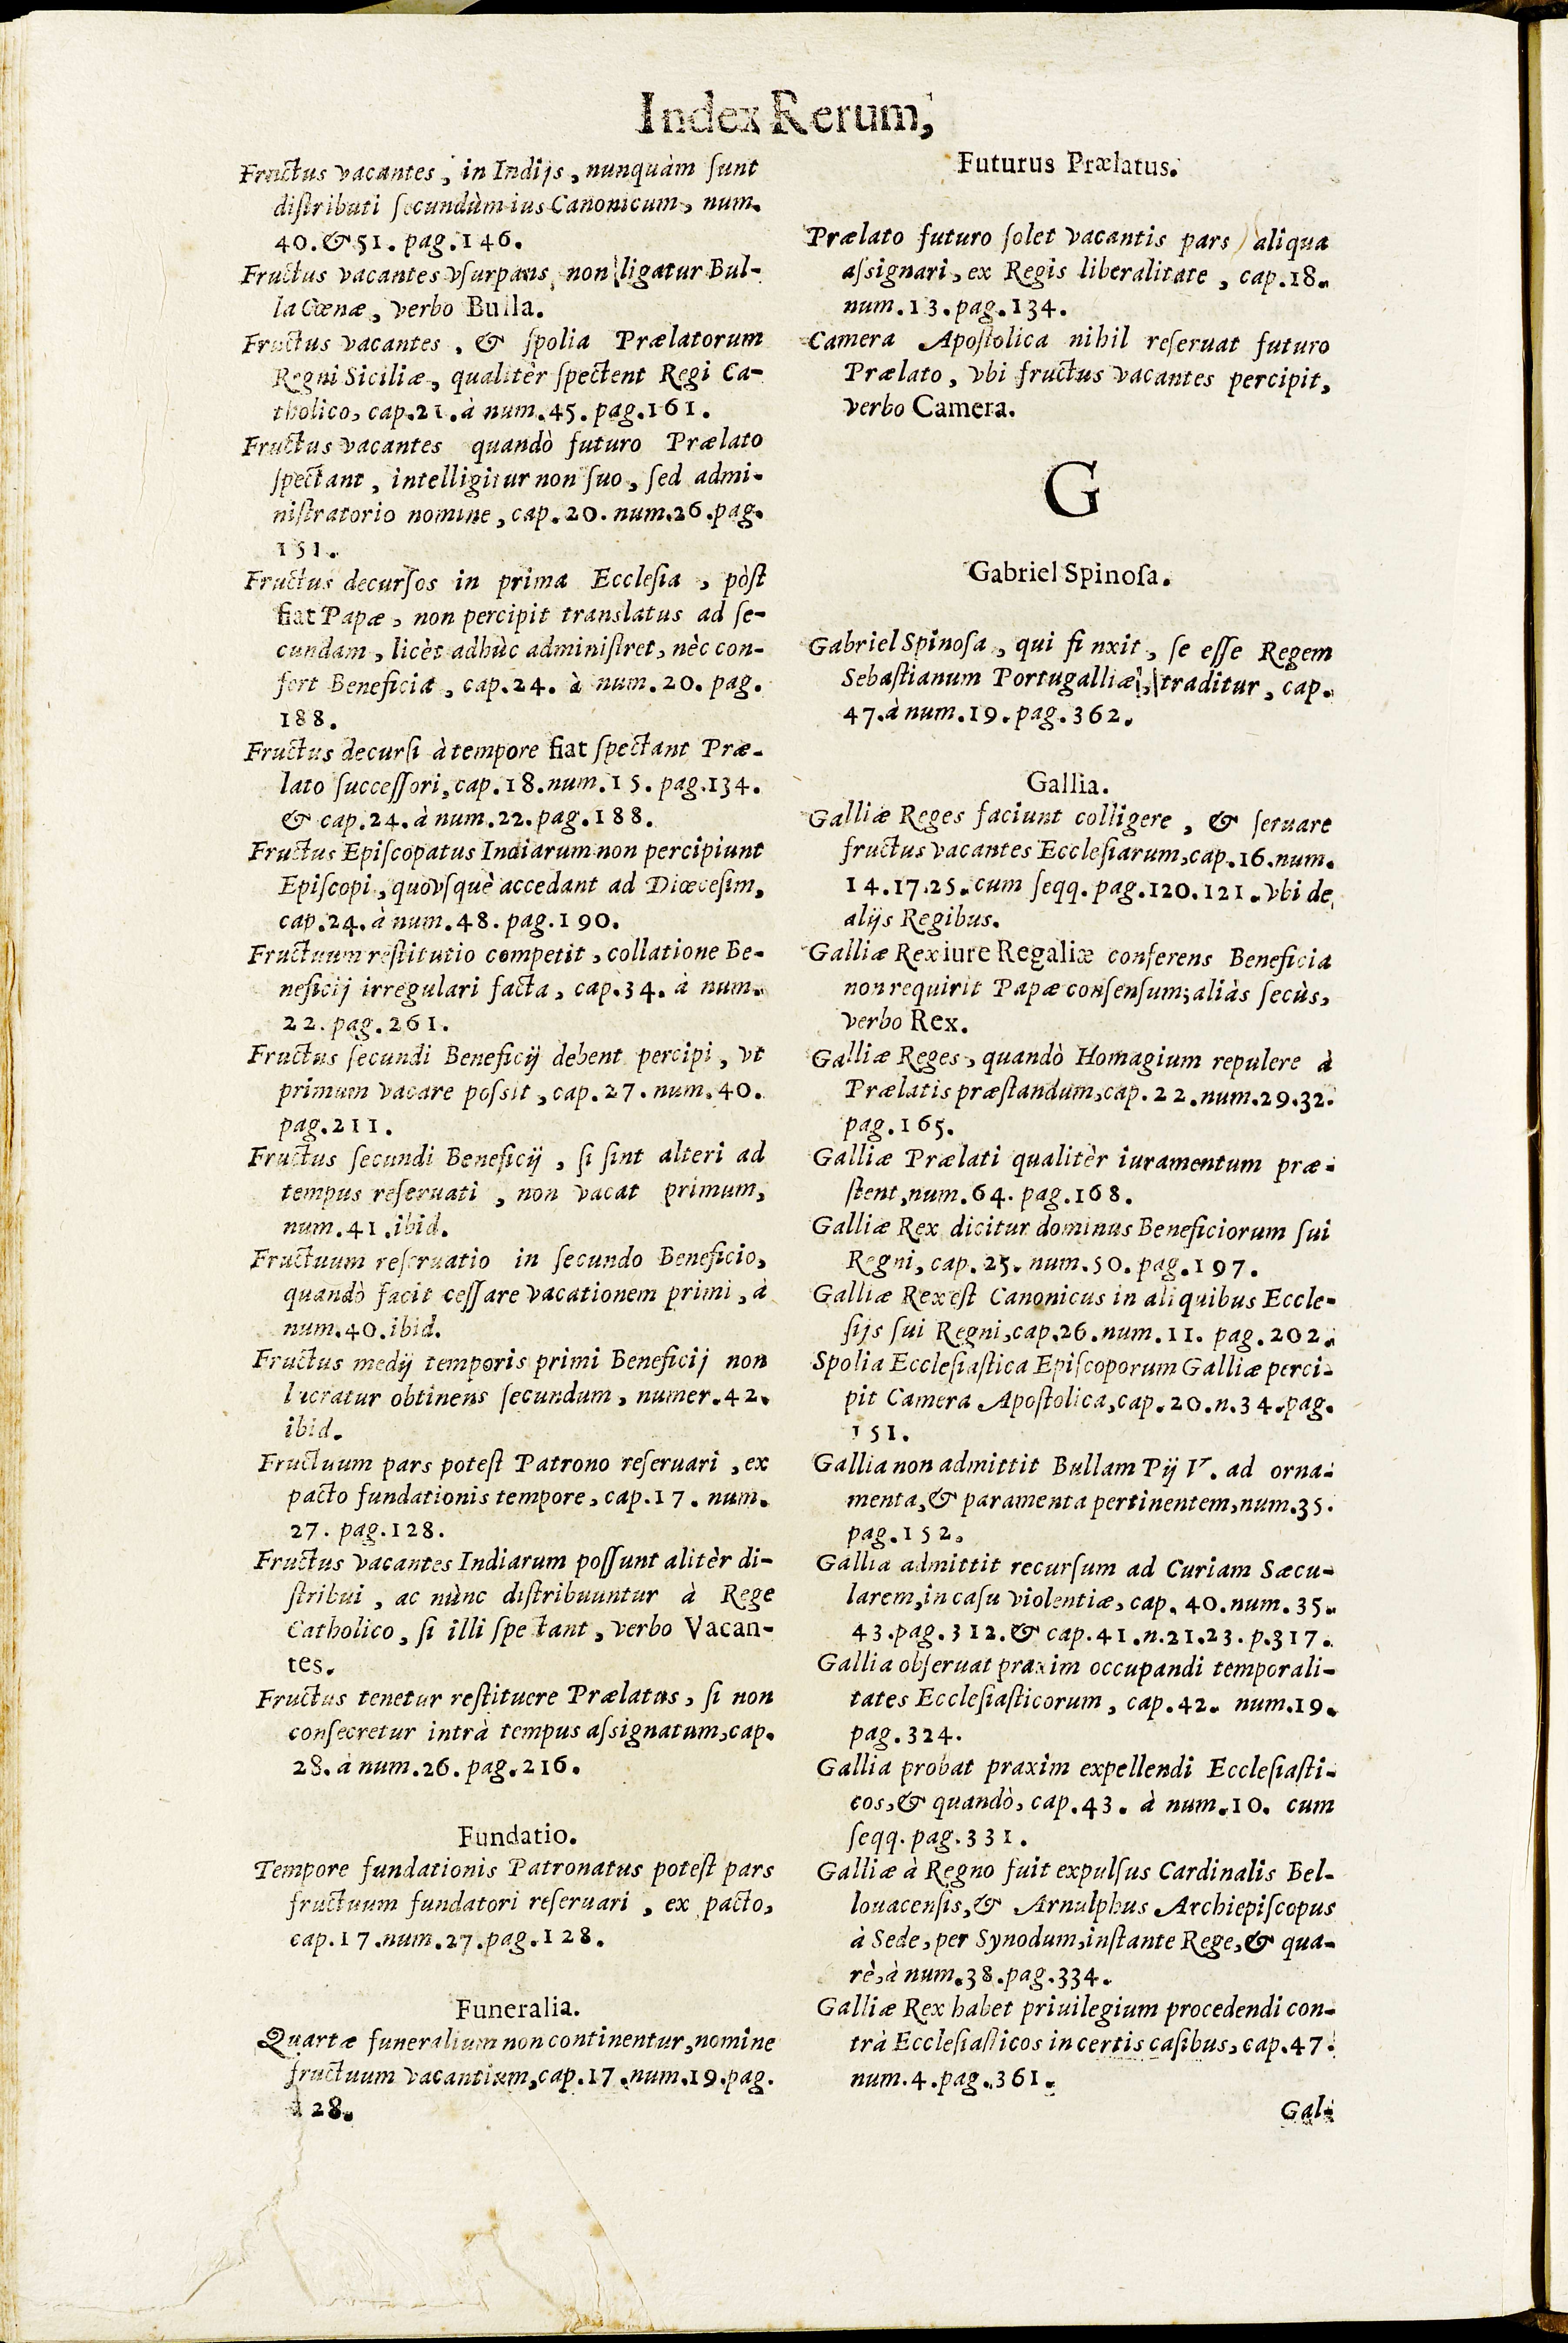 Index Rerum,
Fructus vacantes, in Indijs, nunquàm ſunt
diſtributi ſecundùm ius Canonicum, num.
40. & 51. pag. 146.
Fructus vacantes vſurpans, non ligatur Bul-
la Cœnæ, verbo Bulla.
Fructus vacantes, & ſpolia Prælatorum
Regni Siciliæ, qualitèr ſpectent Regi Ca-
tholico, cap. 21. à num. 45. pag. 161.
Fructus vacantes quandò futuro Prælato
ſpectant, intelligitur non ſuo, ſed admi-
niſtratorio nomine, cap. 20. num. 26. pag.
151.
Fructus decurſos in prima Eccleſia, pòſt
fiat Papæ, non percipit translatus ad ſe-
cundam, licèt adhùc adminiſtret, nèc con-
fert Beneficia, cap. 24. à num. 20. pag.
188.
Fructus decurſi à tempore fiat ſpectant Præ-
lato ſucceſſori, cap. 18. num. 15. pag. 134.
& cap. 24. à num. 22. pag. 188.
Fructus Epiſcopatus Indiarum non percipiunt
Epiſcopi, quovſquè accedant ad Diœceſim,
cap. 24. à num. 48. pag. 190.
Fructuum reſtitutio competit, collatione Be-
neficij irregulari facta, cap. 34. à num.
22. pag. 261.
Fructus ſecundi Beneficij debent percipi, vt
primum vacare poſsit, cap. 27. num. 40.
pag. 211.
Fructus ſecundi Beneficij, ſi ſint alteri ad
tempus reſeruati, non vacat primum,
num. 41. ibid.
Fructuum reſeruatio in ſecundo Beneficio,
quandò facit ceſſare vacationem primi, à
num. 40. ibid.
Fructus medij temporis primi Beneficij non
lucratur obtinens ſecundum, numer. 42.
ibid.
Fructuum pars poteſt Patrono reſeruari, ex
pacto fundationis tempore, cap. 17. num.
27. pag. 128.
Fructus vacantes Indiarum poſſunt alitèr di-
ſtribui, ac nùnc diſtribuuntur à Rege
Catholico, ſi illi ſpectant, verbo Vacan-
tes.
Fructus tenetur reſtituere Prælatus, ſi non
conſecretur intrà tempus aſsignatum, cap.
28. à num. 26. pag. 216.
Fundatio.
Tempore fundationis Patronatus poteſt pars
fructuum fundatori reſeruari, ex pacto,
cap. 17. num. 27. pag. 128.
Funeralia.
Quartæ funeralium non continentur, nomine
fructuum vacantium, cap. 17. num. 19. pag.
128.
Futurus Prælatus.
Prælato futuro ſolet vacantis pars aliqua
aſsignari, ex Regis liberalitate, cap. 18.
num. 13. pag. 134.
Camera Apoſtolica nihil reſeruat futuro
Prælato, vbi fructus vacantes percipit,
verbo Camera.
G
Gabriel Spinoſa.
Gabriel Spinoſa, qui finxit, ſe eſſe Regem
Sebaſtianum Portugalliæ, traditur, cap.
47. à num. 19. pag. 362.
Gallia.
Galliæ Reges faciunt colligere, & ſeruare
fructus vacantes Eccleſiarum, cap. 16. num.
14. 17. 25. cum ſeqq. pag. 120. 121. vbi de
alijs Regibus.
Galliæ Rex iure Regaliæ conferens Beneficia
non requirit Papæ conſenſum; aliàs ſecùs,
verbo Rex.
Galliæ Reges, quandò Homagium repulere à
Prælatis præſtandum, cap. 22. num. 29. 32.
pag. 165.
Galliæ Prælati qualitèr iuramentum præ-
ſtent, num. 64. pag. 168.
Galliæ Rex dicitur dominus Beneficiorum ſui
Regni, cap. 25. num. 50. pag. 197.
Galliæ Rex eſt Canonicus in aliquibus Eccle-
ſijs ſui Regni, cap. 26. num. 11. pag. 202.
Spolia Eccleſiaſtica Epiſcoporum Galliæ perci-
pit Camera Apoſtolica, cap. 20. n. 34. pag.
151.
Gallia non admittit Bullam Pij V. ad orna-
menta, & paramenta pertinentem, num. 35.
pag. 152.
Gallia admittit recurſum ad Curiam Sæcu-
larem, in caſu violentiæ, cap. 40. num. 35.
43. pag. 312. & cap. 41. n. 21. 23. p. 317.
Gallia obſeruat praxim occupandi temporali-
tates Eccleſiaſticorum, cap. 42. num. 19.
pag. 324.
Gallia probat praxim expellendi Eccleſiaſti-
cos, & quandò, cap. 43. à num. 10. cum
ſeqq. pag. 331.
Galliæ à Regno fuit expulſus Cardinalis Bel-
louacenſis, & Arnulphus Archiepiſcopus
à Sede, per Synodum, inſtante Rege, & qua-
rè, à num. 38. pag. 334.
Galliæ Rex habet priuilegium procedendi con-
trà Eccleſiaſticos in certis caſibus, cap. 47.
num. 4. pag. 361.
Gal-